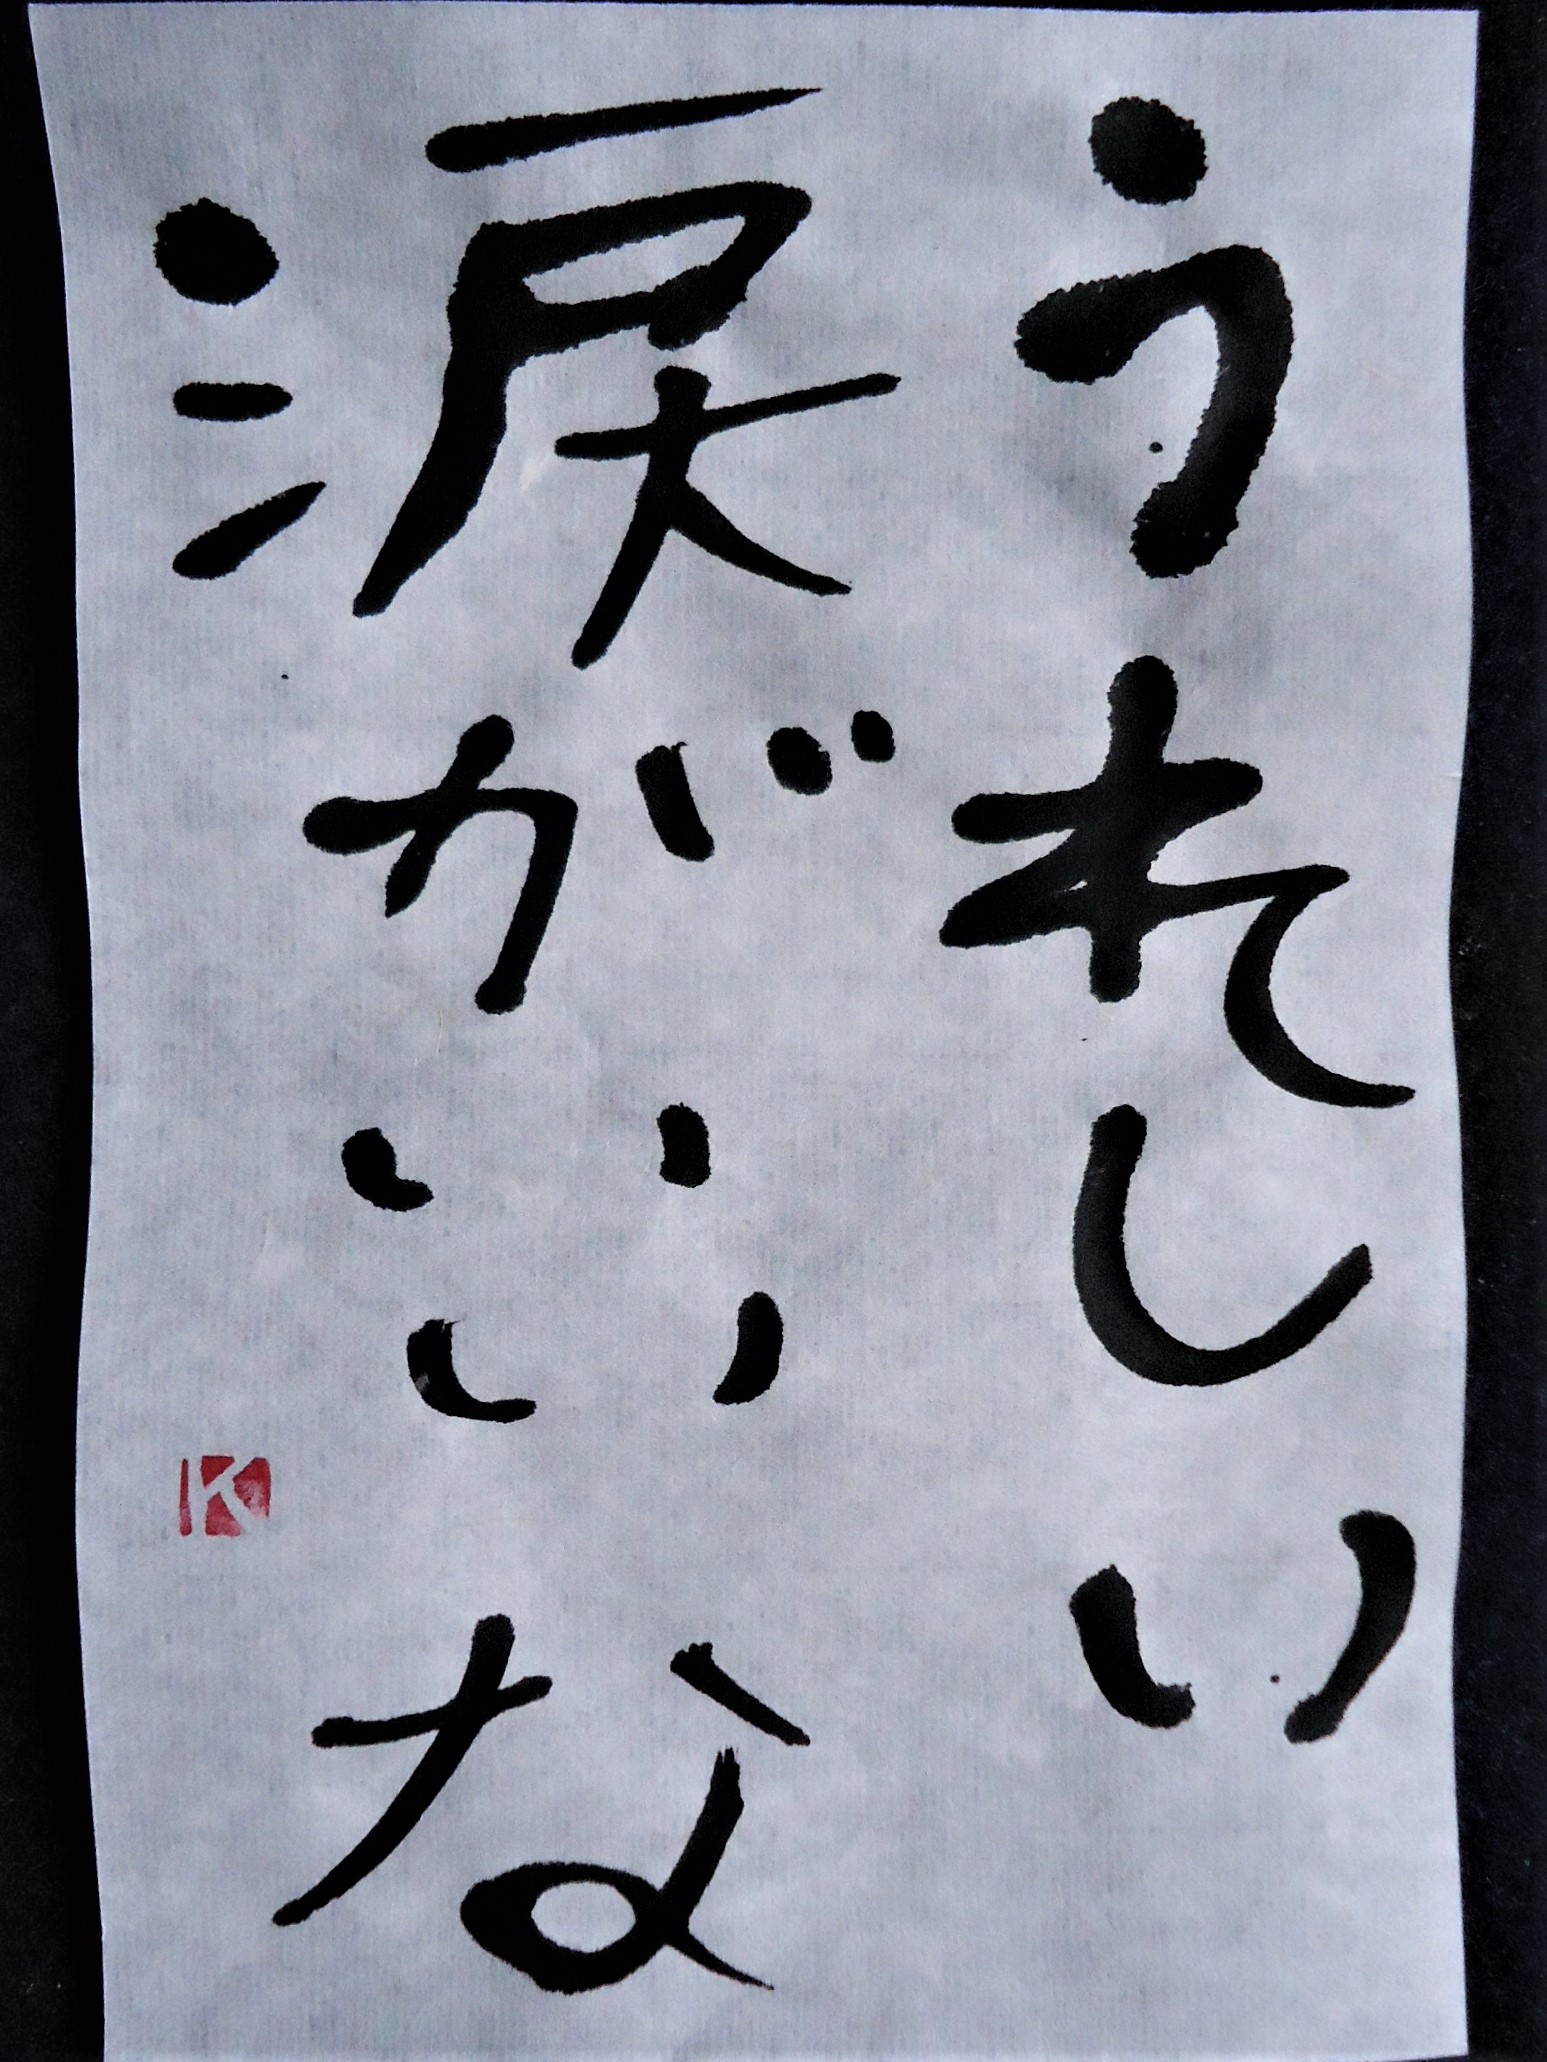 うれしい
涙がいいな
K